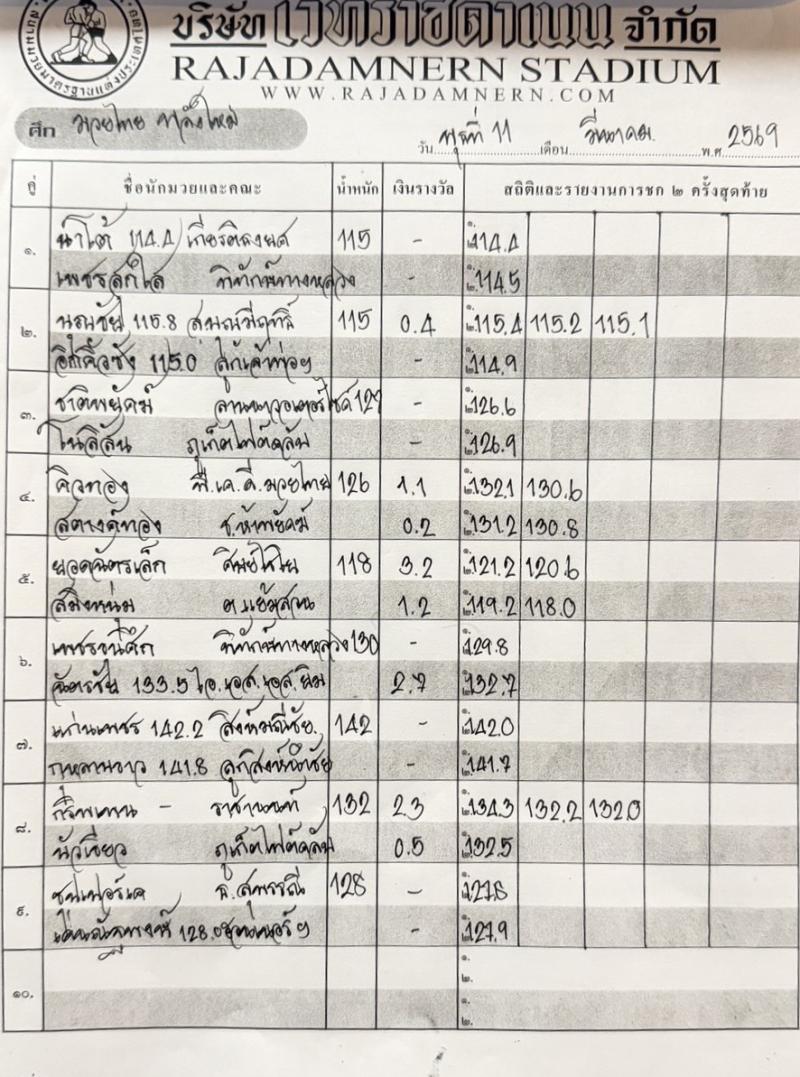 บริษัท เวทีราชดำเนิน จำกัด
RAJADAMNERN STADIUM
WWW.RAJADAMNERN.COM
ศึก มวยไทย พลังใหม่
วัน พุธที่ 11 เดือน มีนาคม. พ.ศ. 2569
คู่ ชื่อนักมวยและคณะ น้ำหนัก เงินรางวัล สถิติและรายงานการชก ๒ ครั้งสุดท้าย
๑. น้ำใต้ 114.4 เกียรติทรงยศ 115 - ๑. ๒. 114.4
เพชรสุกใส พิทักษ์ทางหลวง - ๑. ๒. 114.5
๒. 115.8 115 0.4 ๑. ๒. 115.4 115.2 115.1
115.0 ลูกเจ้าพ่อฯ - ๑. ๒. 114.9
๓. ชาติพยัคฆ์ 127 - ๑. ๒. 126.6
ภูเก็ตไฟต์คลับ - ๑. ๒. 126.9
๔. คิวทอง พี.เค.ดี.มวยไทย 126 1.1 ๑. ๒. 132.1 130.6
สตางค์ทอง ช.ห้าพยัคฆ์ 0.2 ๑. ๒. 131.2 130.8
๕. ยอดฉัตรเล็ก 118 3.2 ๑. ๒. 121.2 120.6
สมิงหนุ่ม 1.2 ๑. ๒. 119.2 118.0
๖. พิทักษ์ทางหลวง 130 - ๑. ๒. 129.8
ฉัตรชัย 133.5 ไอ.เอส.เอส.ยิม 2.7 ๑. ๒. 132.7
๗. แก่นเพชร 142.2 สิงห์มณีชัย. 142 - ๑. ๒. 142.0
กุหลาบขาว 141.8 - ๑. ๒. 141.7
๘. - ราชานนท์ 132 2.3 ๑. ๒. 134.3 132.2 132.0
บัวเขียว ภูเก็ตไฟต์คลับ 0.5 ๑. ๒. 132.5
๙. ส.สุพรรณี 128 - ๑. ๒. 127.8
128.0 - ๑. ๒. 127.9
๑๐. ๑. ๒.
๑. ๒.